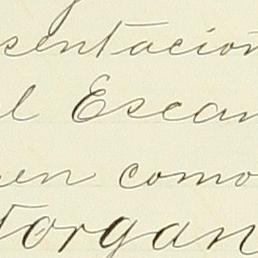 sentación
l Escan
en como
organ